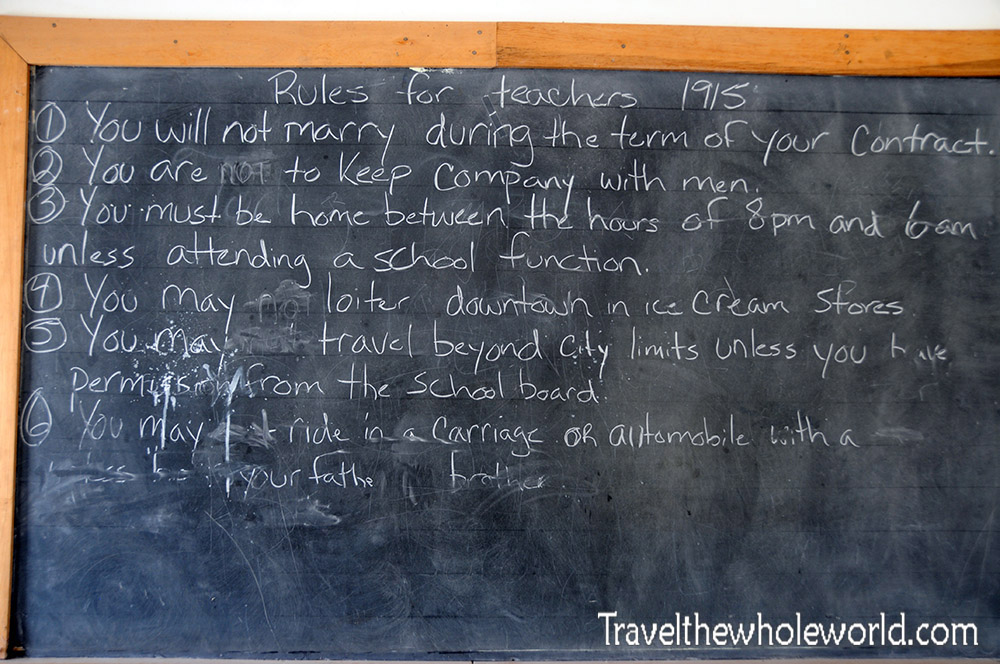 Rules for teachers 1915
① You will not marry during the term of your Contract.
② You are not to keep company with men.
③ You must be home between the hours of 8pm and 6am
unless attending a school function.
④ You may no loiter downtown in ice cream stores
⑤ You may travel beyond city limits unless you have
permission from the school board.
⑥ You may ride in a carriage or automobile with a
your fathe brother
Travelthewholeworld.com